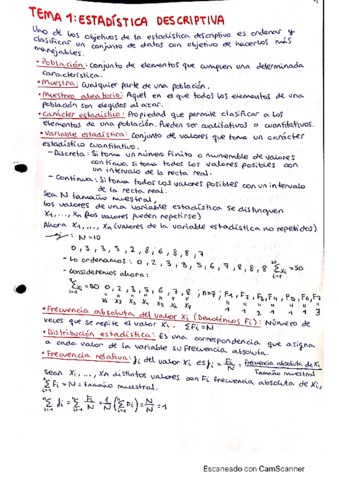 TEMA 1: ESTADÍSTICA DESCRIPTIVA
Uno de los objetivos de la estadística descriptiva es ordenar y
clasificar un conjunto de datos con objetivo de hacerlos más
manejables.
• Población: conjunto de elementos que cumplen una determinada
característica.
• Muestra: cualquier parte de una población.
• Muestreo aleatorio: Aquel en que todos los elementos de una
población son elegidos al azar.
• Carácter estadístico: Propiedad que permite clasificar a los
elementos de una población. Pueden ser cualitativos o cuantitativos.
• Variable estadística: conjunto de valores que toma un carácter
estadístico cuantitativo.
- Discreta: Si toma un número finito o numerable de valores
continua si toma todos los valores posibles con
un intervalo de la recta real.
- Continua: Si toma todos los valores posibles con un intervalo
de la recta real.
Sea N tamaño muestral,
los valores de una variable estadística se distinguen
X1, ..., Xn (los valores pueden repetirse)
Ahora X1, ..., Xn (valores de la variable estadística no repetidos)
ej: N=10
0, 3, 3, 5, 2, 8, 6, 8, 8, 7
- Lo ordenamos: 0, 2, 3, 3, 5, 6, 7, 8, 8, 8 Σ xi = 50
- Consideremos ahora:
Σ xi = 50 0, 2, 3, 5, 6, 7, 8; n=7; F1, F2, F3, F4, F5, F6, F7
X1 X2 X3 X4 X5 X6 X7 1 1 2 1 1 1 3
• Frecuencia absoluta del valor Xi (Denotamos Fi): Número de
veces que se repite el valor Xi. ΣFi=N
• Distribución estadística: Es una correspondencia que asigna
a cada valor de la variable su frecuencia absoluta.
• Frecuencia relativa: fi del valor xi es fi = Fi/N = Frecuencia absoluta de Xi / Tamaño muestral
Sean X1, ..., Xn distintos valores con Fi frecuencia absoluta de Xi,
Σ Fi = N = tamaño muestral.
Σ fi = Σ Fi/N = 1/N (Σ Fi) = N/N = 1
Escaneado con CamScanner